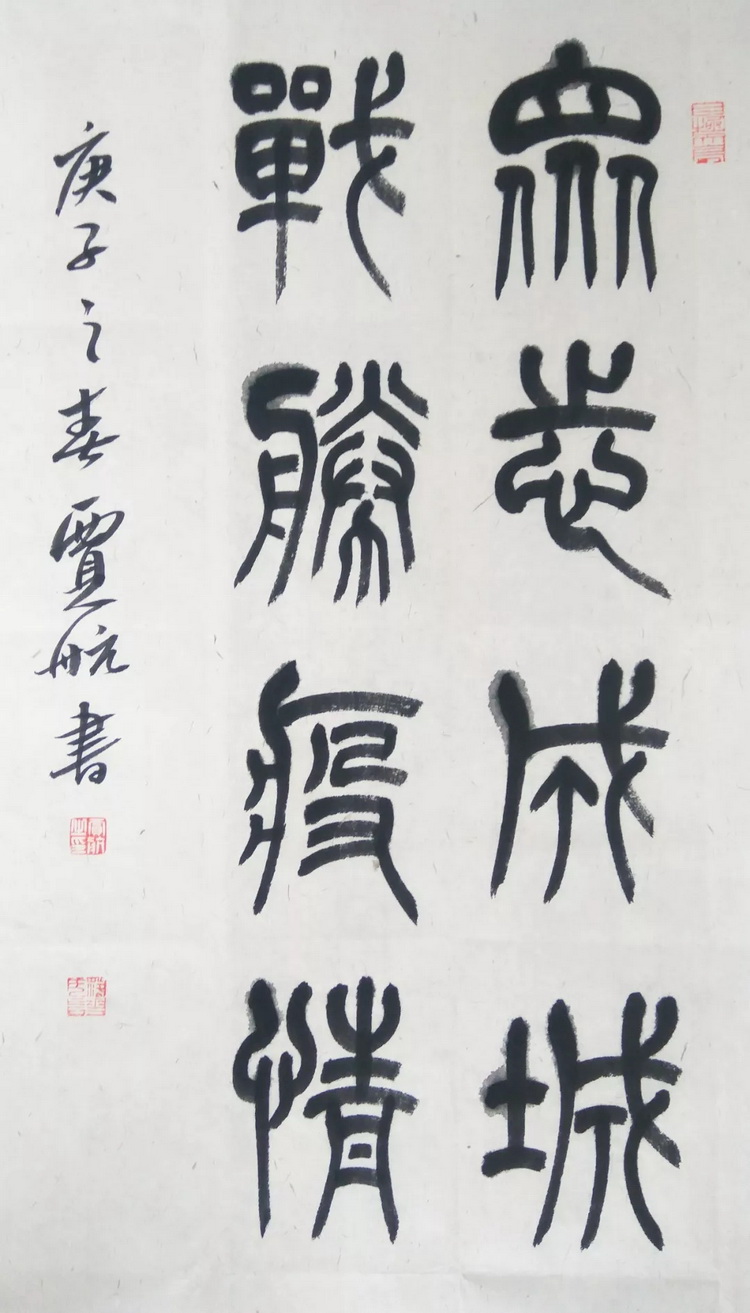 眾志成城
戰勝疫情
庚子之春賈航書